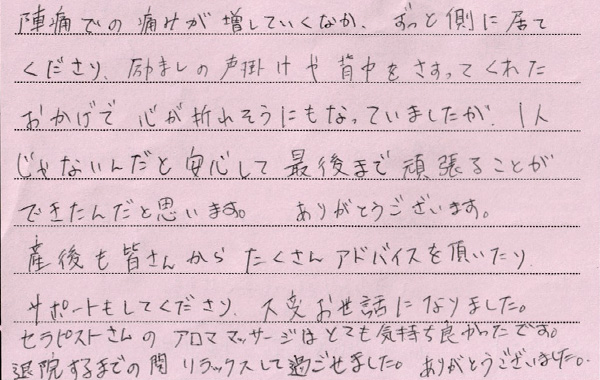 陣痛での痛みが増していくなか、ずっと側に居て
くださり、励ましの声掛けや背中をさすってくれた
おかげで心が折れそうにもなっていましたが、1人
じゃないんだと安心して最後まで頑張ることが
できたんだと思います。 ありがとうございます。
産後も皆さんからたくさんアドバイスを頂いたり、
サポートもしてくださり、大変お世話になりました。
セラピストさんのアロママッサージはとても気持ち良かったです。
退院するまでの間リラックスして過ごせました。ありがとうございました。